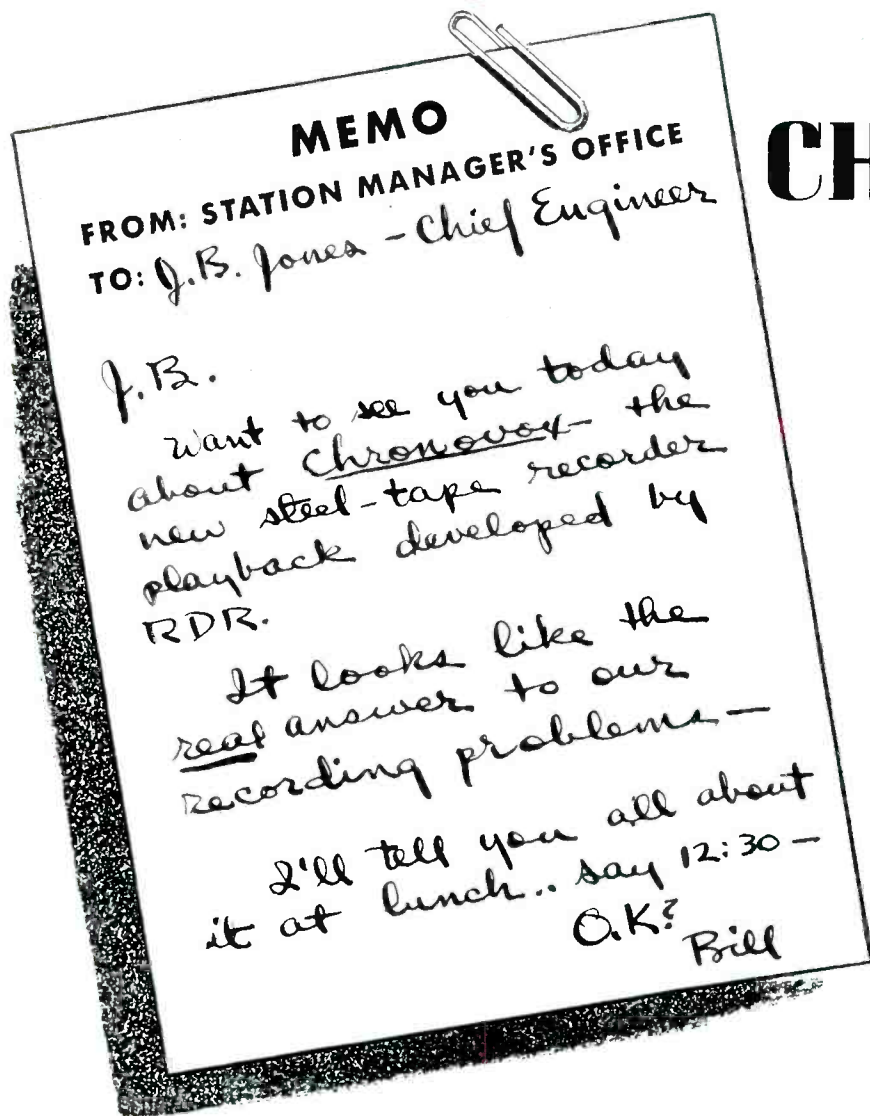 MEMO
FROM: STATION MANAGER'S OFFICE
TO: J.B. Jones - Chief Engineer
J.B.
Want to see you today
about Chronovox - the
new steel-tape recorder
playback developed by
RDR.
It looks like the
real answer to our
recording problems —
I'll tell you all about
it at lunch.. say 12:30 —
O.K?
Bill
CH